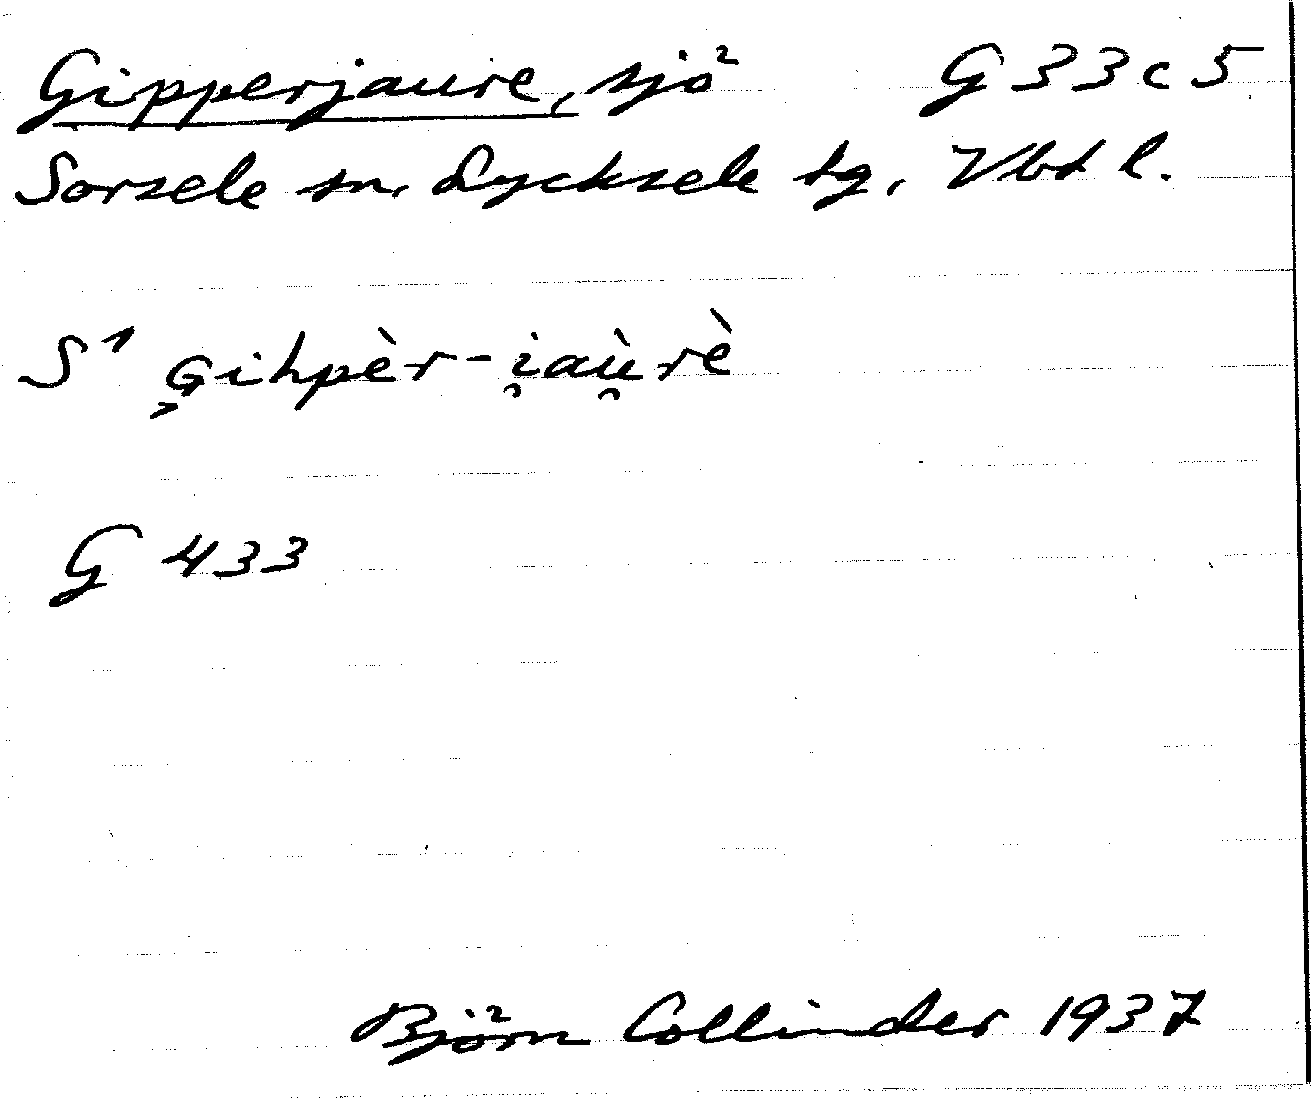 Gipperjaure, sjö G 33 c 5
Sorsele sn. Lycksele tg. Vbt l.
S1 G̦ihpèr-i̯aù̯rè
G 433
Björn Collinder 1937